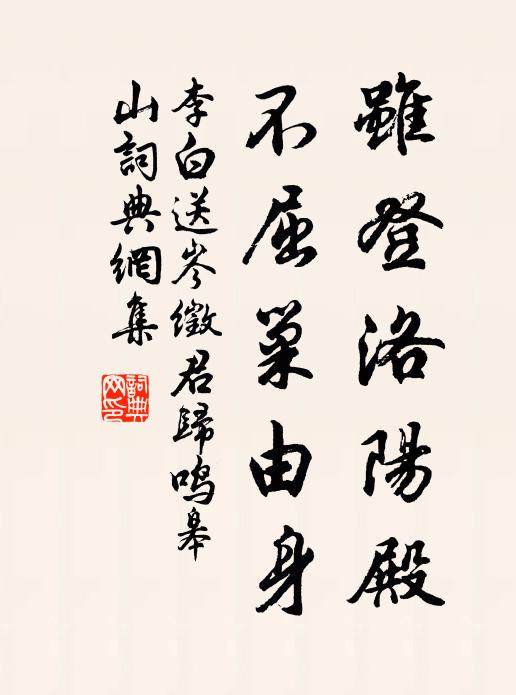 雖登洛陽殿
不屈巢由身
李白送岑徵君歸鳴皋
山詞典網集
詞典
网印